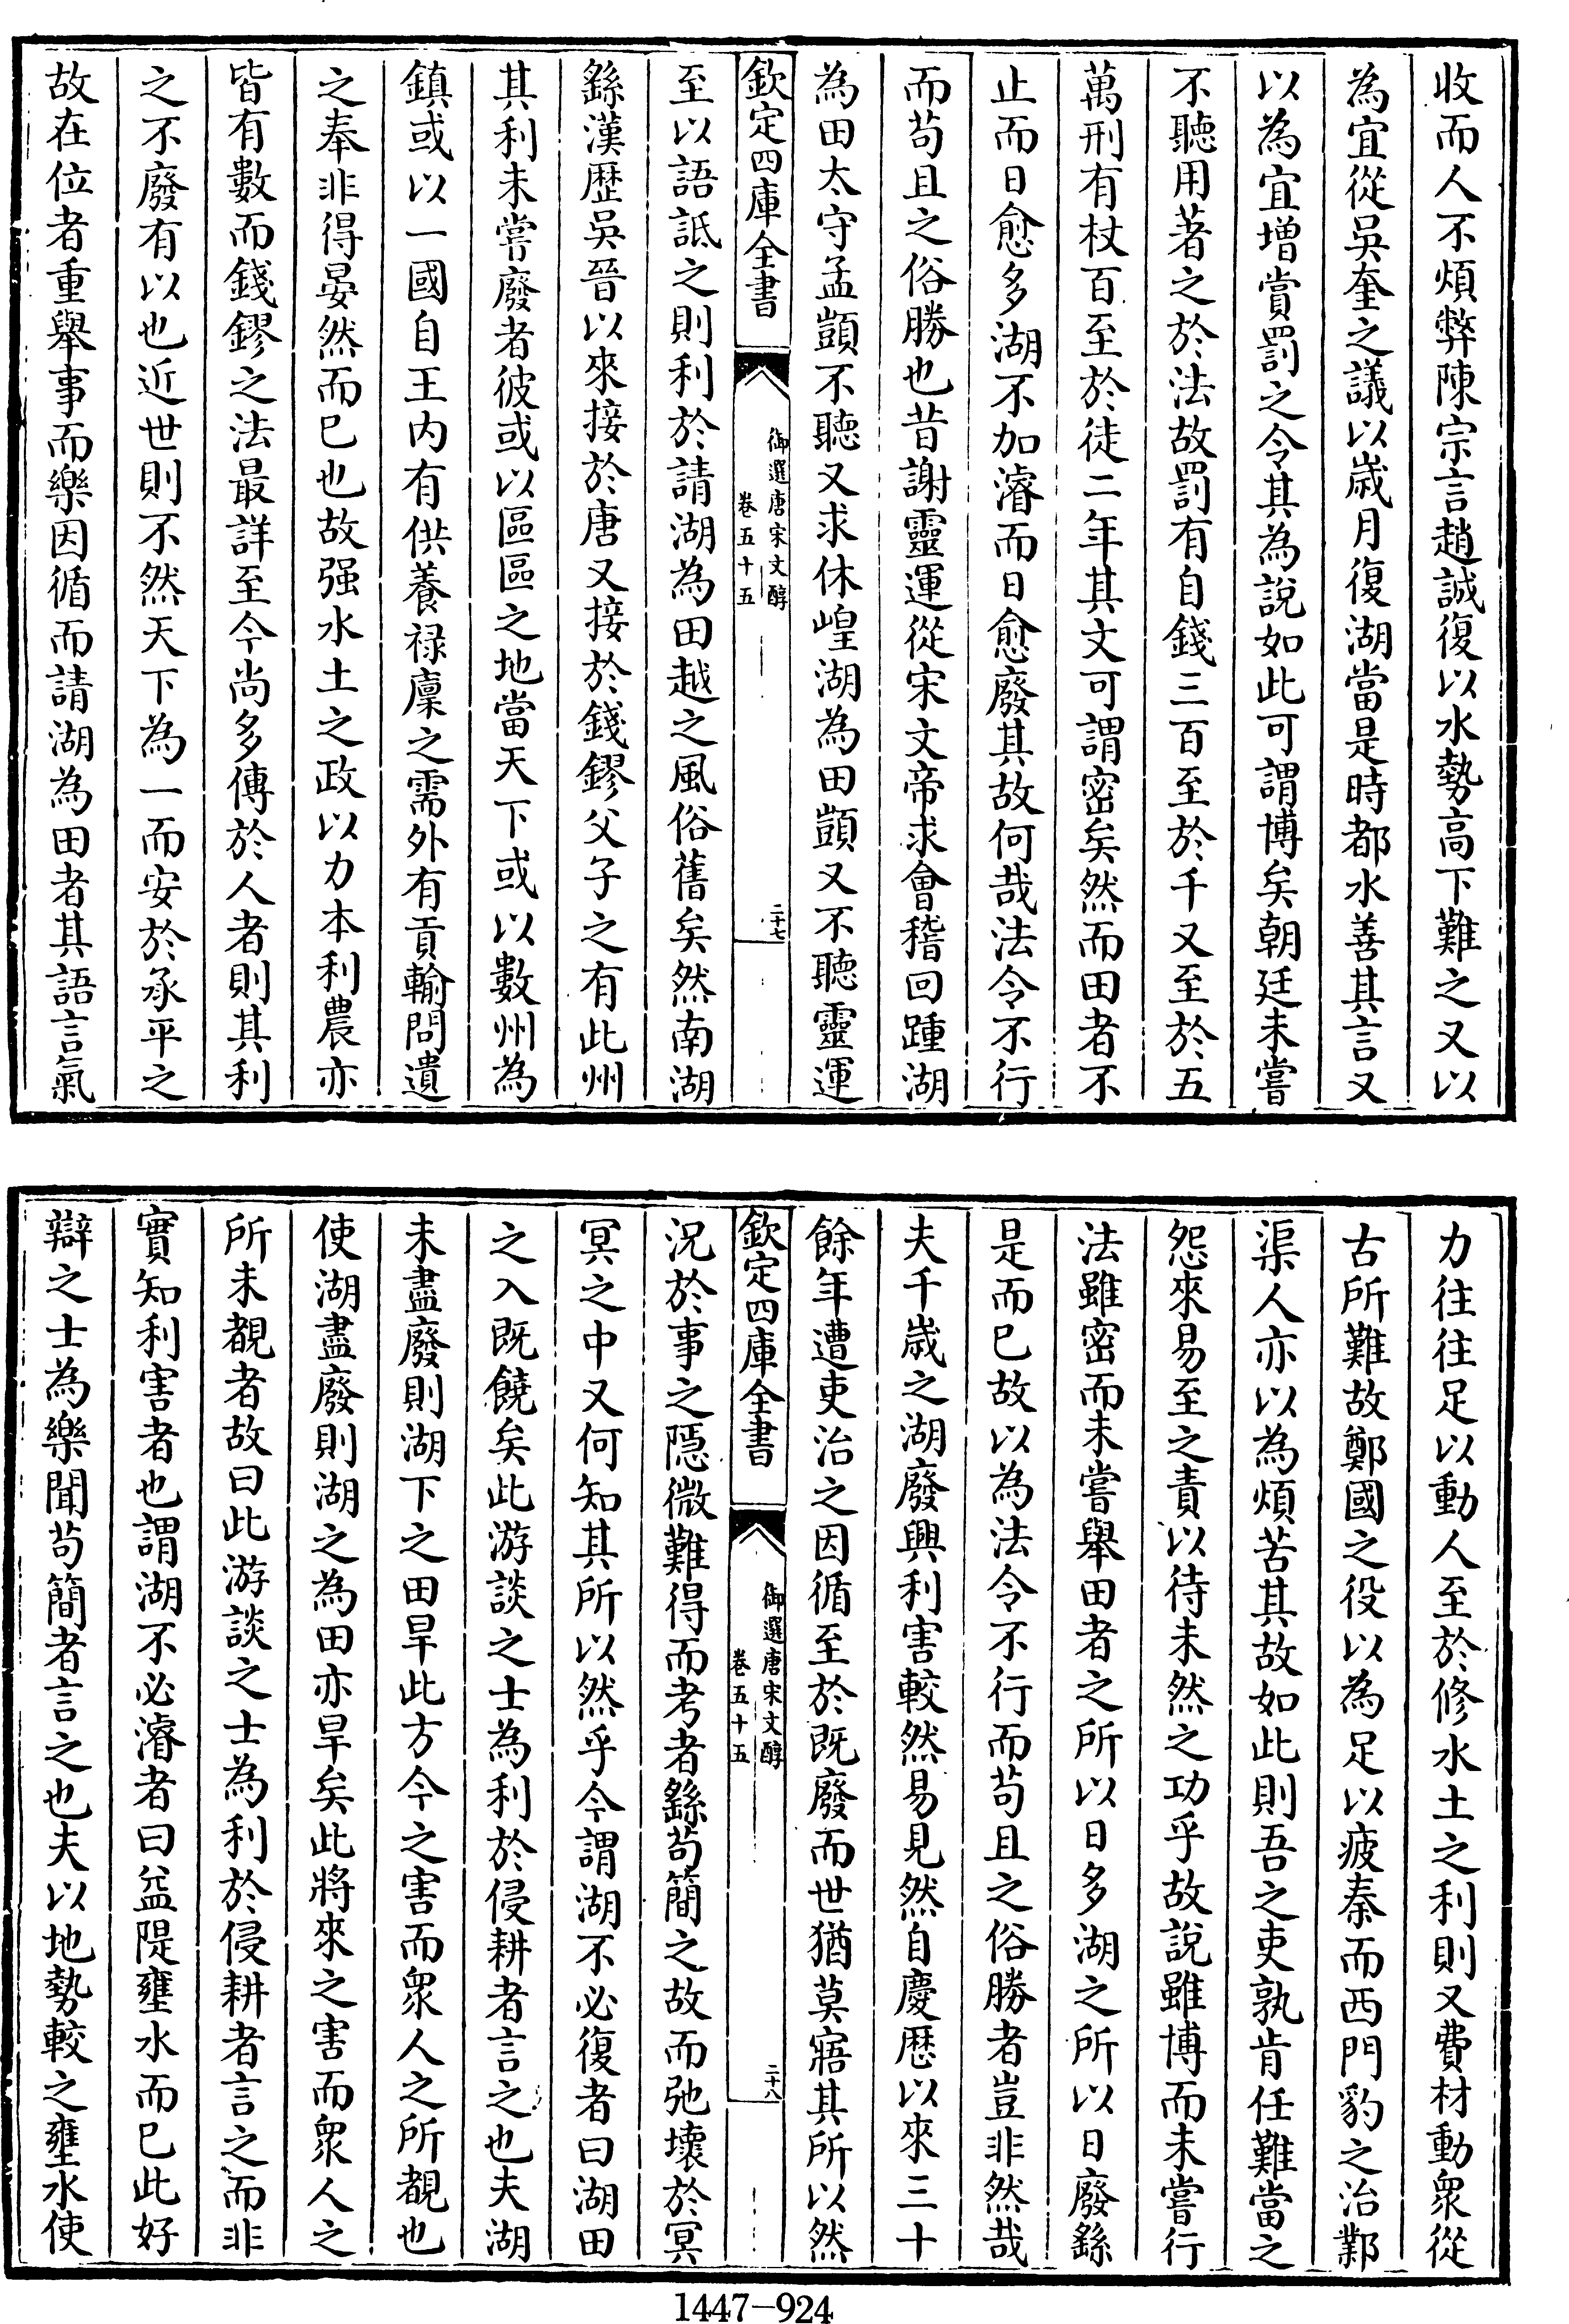 收而人不煩弊陳宗言趙誠復以水勢高下難之又以
為宜從吳奎之議以歲月復湖當是時都水善其言又
以為宜增賞罰之令其為說如此可謂博矣朝廷未嘗
不聽用著之於法故罰有自錢三百至於千又至於五
萬刑有杖百至於徒二年其文可謂密矣然而田者不
止而日愈多湖不加濬而日愈廢其故何哉法令不行
而苟且之俗勝也昔謝靈運從宋文帝求會稽回踵湖
為田太守孟顗不聽又求休崲湖為田顗又不聽靈運
欽定四庫全書
御選唐宋文醇
卷五十五
二十七
至以語詆之則利於請湖為田越之風俗舊矣然南湖
繇漢歷吳晉以來接於唐又接於錢鏐父子之有此州
其利未嘗廢者彼或以區區之地當天下或以數州為
鎮或以一國自王內有供養祿廩之需外有貢輸問遺
之奉非得晏然而已也故强水土之政以力本利農亦
皆有數而錢鏐之法最詳至今尚多傳於人者則其利
之不廢有以也近世則不然天下為一而安於承平之
故在位者重舉事而樂因循而請湖為田者其語言氣
力往往足以動人至於修水土之利則又費材動眾從
古所難故鄭國之役以為足以疲秦而西門豹之治鄴
渠人亦以為煩苦其故如此則吾之吏孰肯任難當之
怨來易至之責以待未然之功乎故說雖博而未嘗行
法雖密而未嘗舉田者之所以日多湖之所以日廢繇
是而已故以為法令不行而苟且之俗勝者豈非然哉
夫千歲之湖廢興利害較然易見然自慶歷以來三十
餘年遭吏治之因循至於既廢而世猶莫寤其所以然
欽定四庫全書
御選唐宋文醇
卷五十五
二十八
況於事之隱微難得而考者繇苟簡之故而弛壞於冥
冥之中又何知其所以然乎今謂湖不必復者曰湖田
之入既饒矣此游談之士為利於侵耕者言之也夫湖
未盡廢則湖下之田旱此方今之害而眾人之所覩也
使湖盡廢則湖之為田亦旱矣此將來之害而眾人之
所未覩者故曰此游談之士為利於侵耕者言之而非
實知利害者也謂湖不必濬者曰益隄壅水而已此好
辯之士為樂聞苟簡者言之也夫以地勢較之壅水使
1447-924